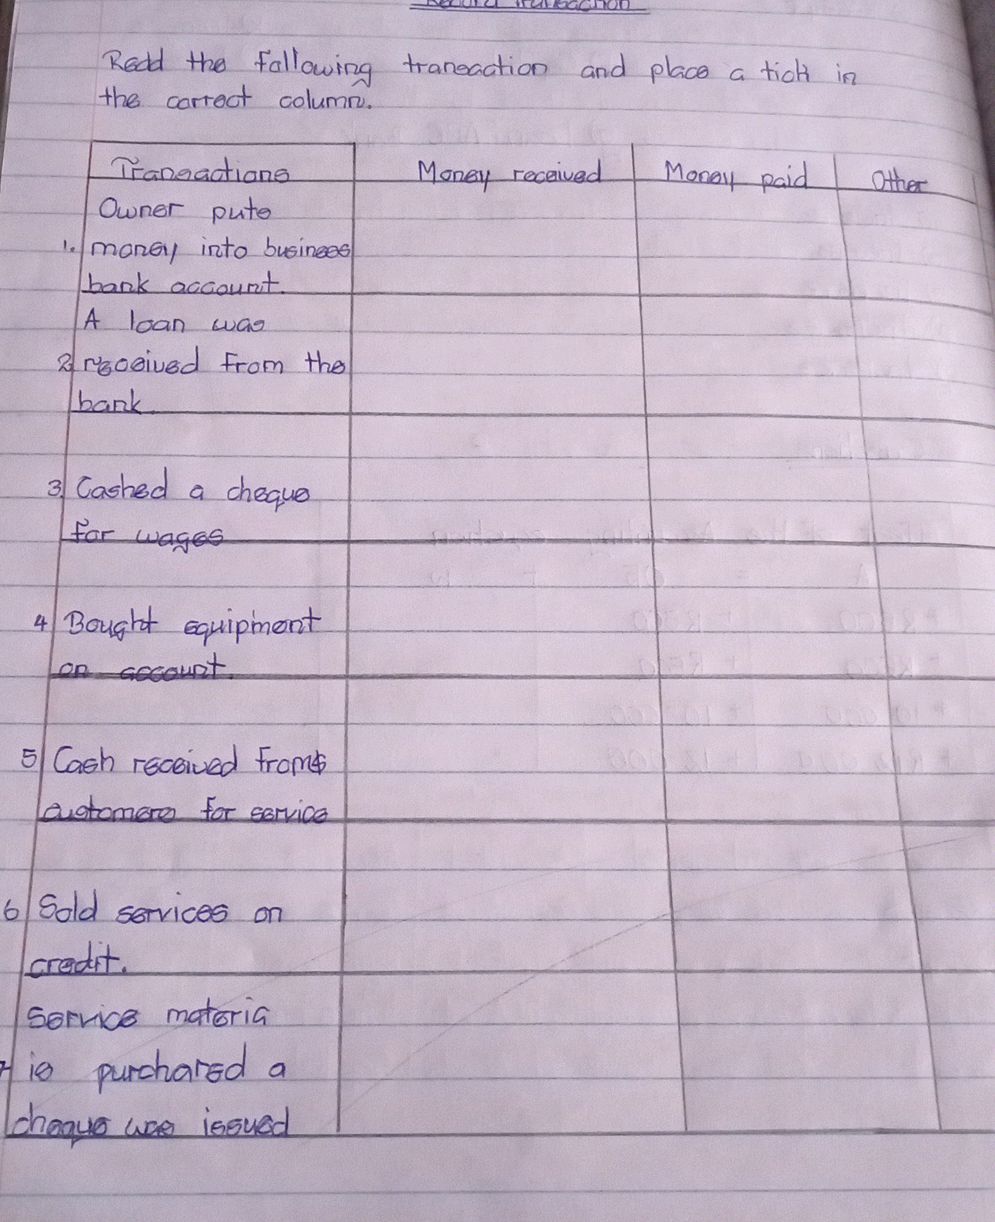 Record Transaction
Read the following transaction and place a tick in
the correct column.
Transactions Money received Money paid Other
Owner puts
1. money into business
bank account.
A loan was
2 received from the
bank.
3 Cashed a cheque
for wages
4 Bought equipment
on account.
5 Cash received from
customers for service
6 Sold services on
credit.
Service materia
7 is purchared a
cheque was issued